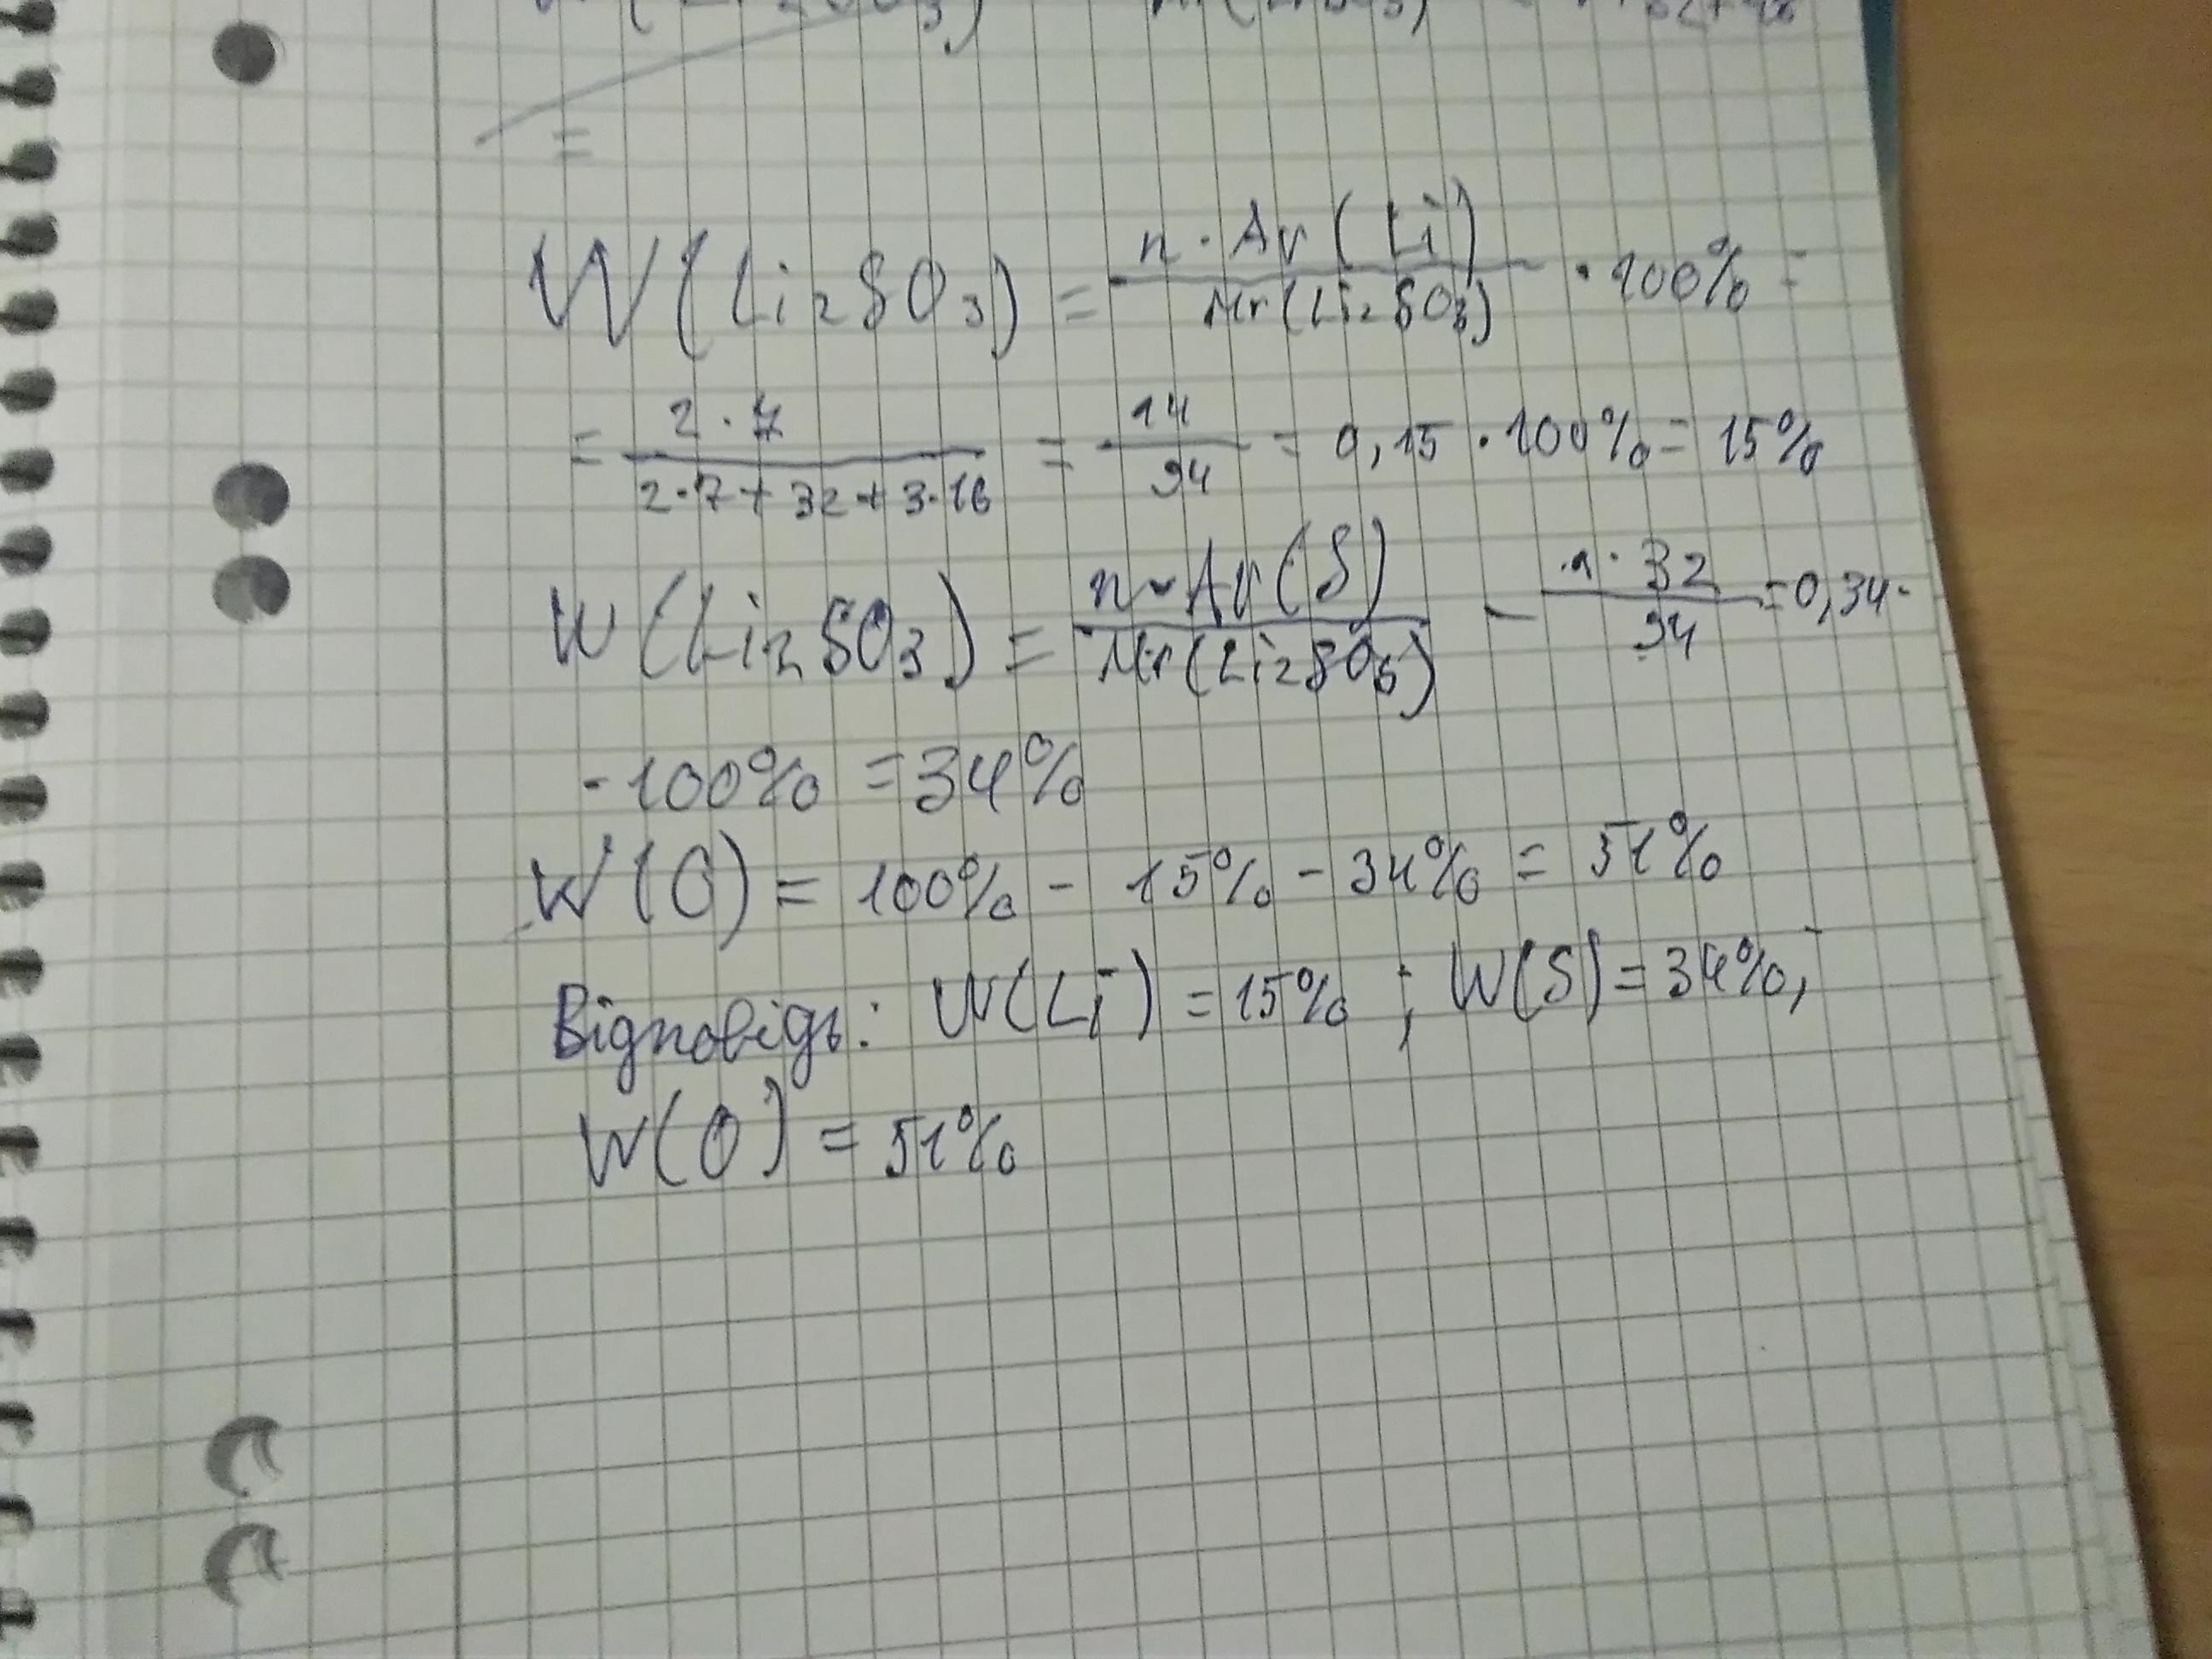 =
W(Li₂SO₃) = n · Ar(Li) / Mr(Li₂SO₃) · 100% =
= 2 · 7 / 2·7 + 32 + 3·16 = 14 / 94 = 0,15 · 100% = 15%
W(Li₂SO₃) = n · Ar(S) / Mr(Li₂SO₃) - 1 · 32 / 94 = 0,34 ·
· 100% = 34%
W(O) = 100% - 15% - 34% = 51%
Відповідь: W(Li) = 15% ; W(S) = 34%;
W(O) = 51%